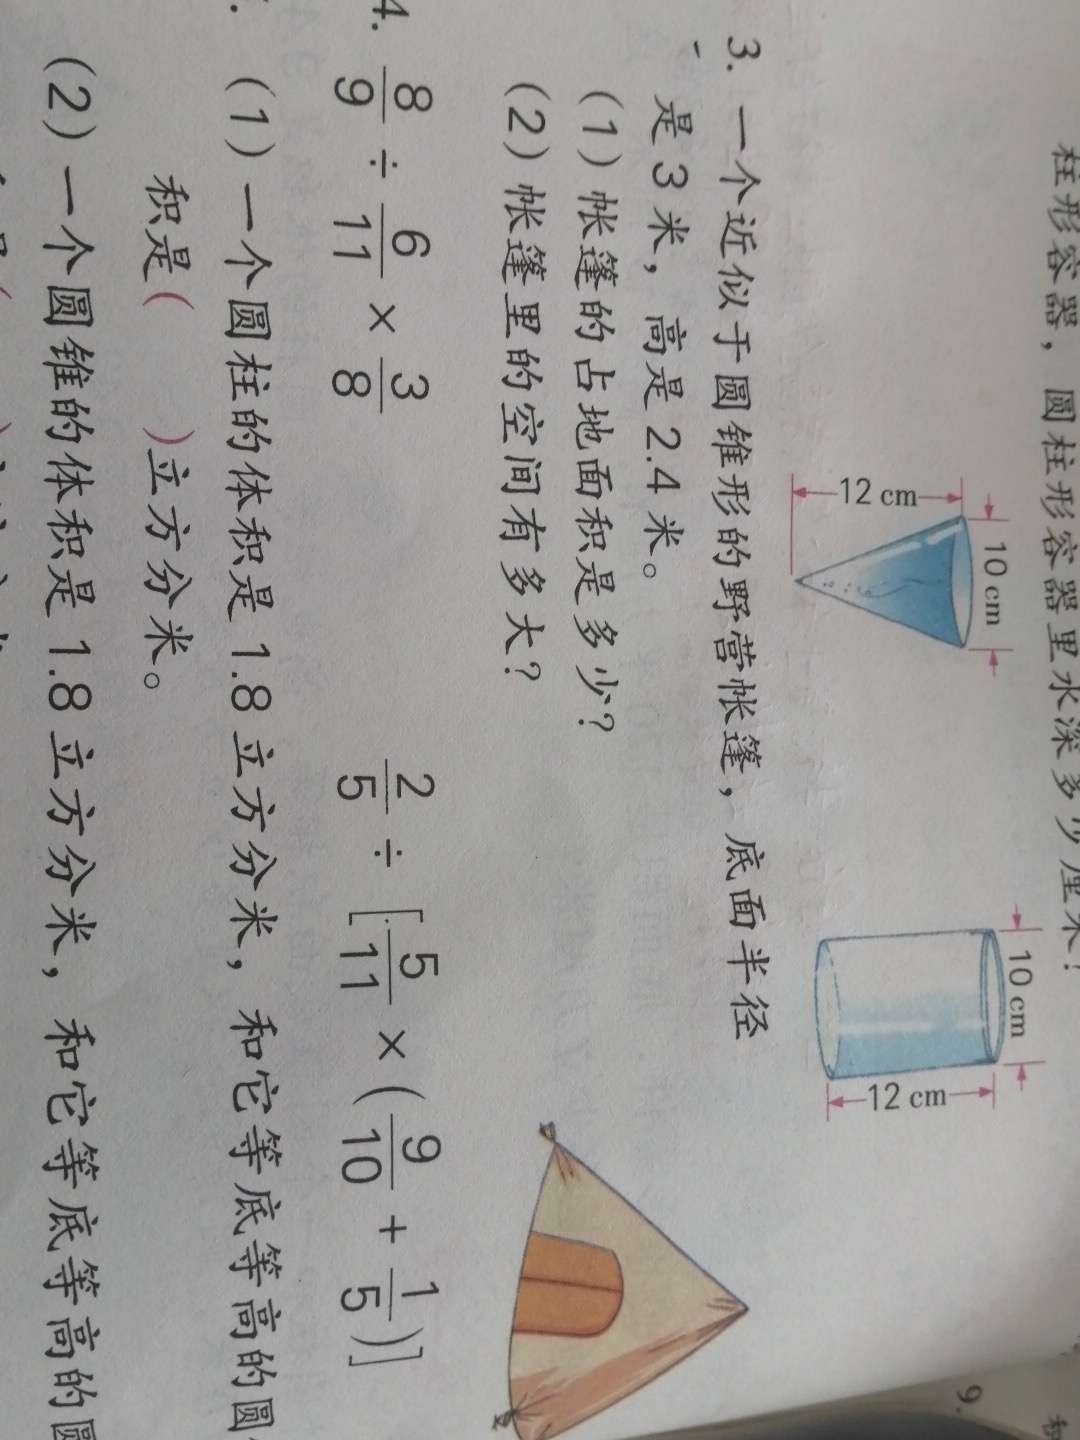 柱形容器，圆柱形容器里水深多少厘米？
12 cm
10 cm
10 cm
12 cm
9.
3. 一个近似于圆锥形的野营帐篷，底面半径
是 3 米，高是 2.4 米。
(1) 帐篷的占地面积是多少？
(2) 帐篷里的空间有多大？
4. 8/9 ÷ 6/11 × 3/8 2/5 ÷ [5/11 × (9/10 + 1/5)]
(1) 一个圆柱的体积是 1.8 立方分米，和它等底等高的圆
积是( )立方分米。
(2) 一个圆锥的体积是 1.8 立方分米，和它等底等高的圆